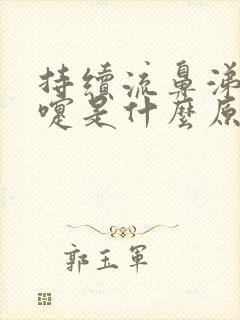 持續流鼻涕
嚏是什麼原
郭玉軍